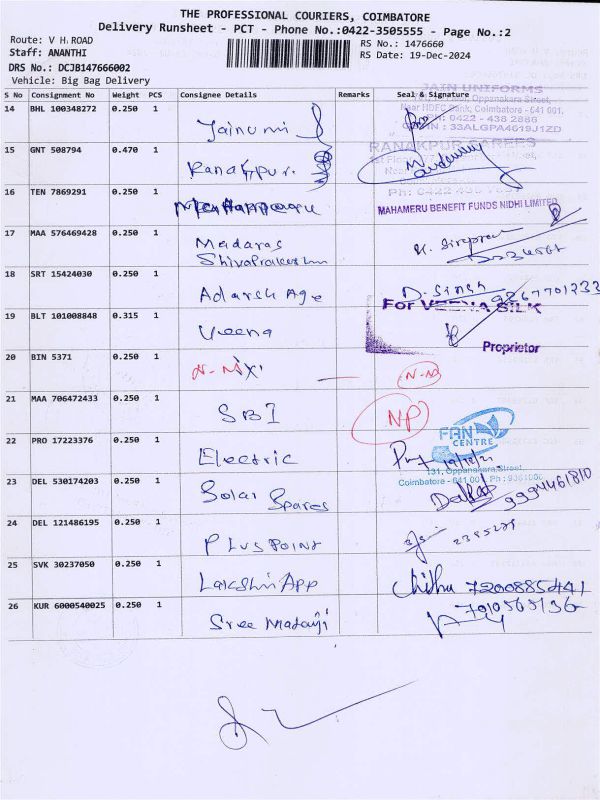 THE PROFESSIONAL COURIERS, COIMBATORE
Delivery Runsheet - PCT - Phone No.:0422-3505555 - Page No.:2
Route: V H ROAD
Staff: ANANTHI
DRS No.: DCJB147666002
Vehicle: Big Bag Delivery
RS No.: 1476660
RS Date: 19-Dec-2024
S No Consignment No Weight PCS Consignee Details Remarks Seal & Signature
14 BHL 100348272 0.250 1 Jainuni
JAIN UNIFORMS
Oppanakara Street,
Near HDFC Bank, Coimbatore - 641 001.
PH: 0422 - 438 2886
GSTIN : 33ALGPA4619J1ZD
15 GNT 508794 0.470 1 Ranakpur.
RANAKPUR SAREES
Ph: 0422
16 TEN 7869291 0.250 1
MAHAMERU BENEFIT FUNDS NIDHI LIMITED
17 MAA 576469428 0.250 1 Madaras
Shivaprakashm
18 SRT 15424030 0.250 1 Adarsh Age D. Singh 9867701233
19 BLT 101008848 0.315 1 Veena
For VEENA SILK
Proprietor
20 BIN 5371 0.250 1
21 MAA 706472433 0.250 1 SBI NP
22 PRO 17223376 0.250 1 Electric
FAN
CENTRE
131, Oppanakara Street,
Coimbatore - 641 001.
23 DEL 530174203 0.250 1 Solar Spares 9994461810
24 DEL 121486195 0.250 1 PlusPoint
25 SVK 30237050 0.250 1 Lakshmi App Chithu 7200885441
26 KUR 6000540025 0.250 1 Sree Mataji